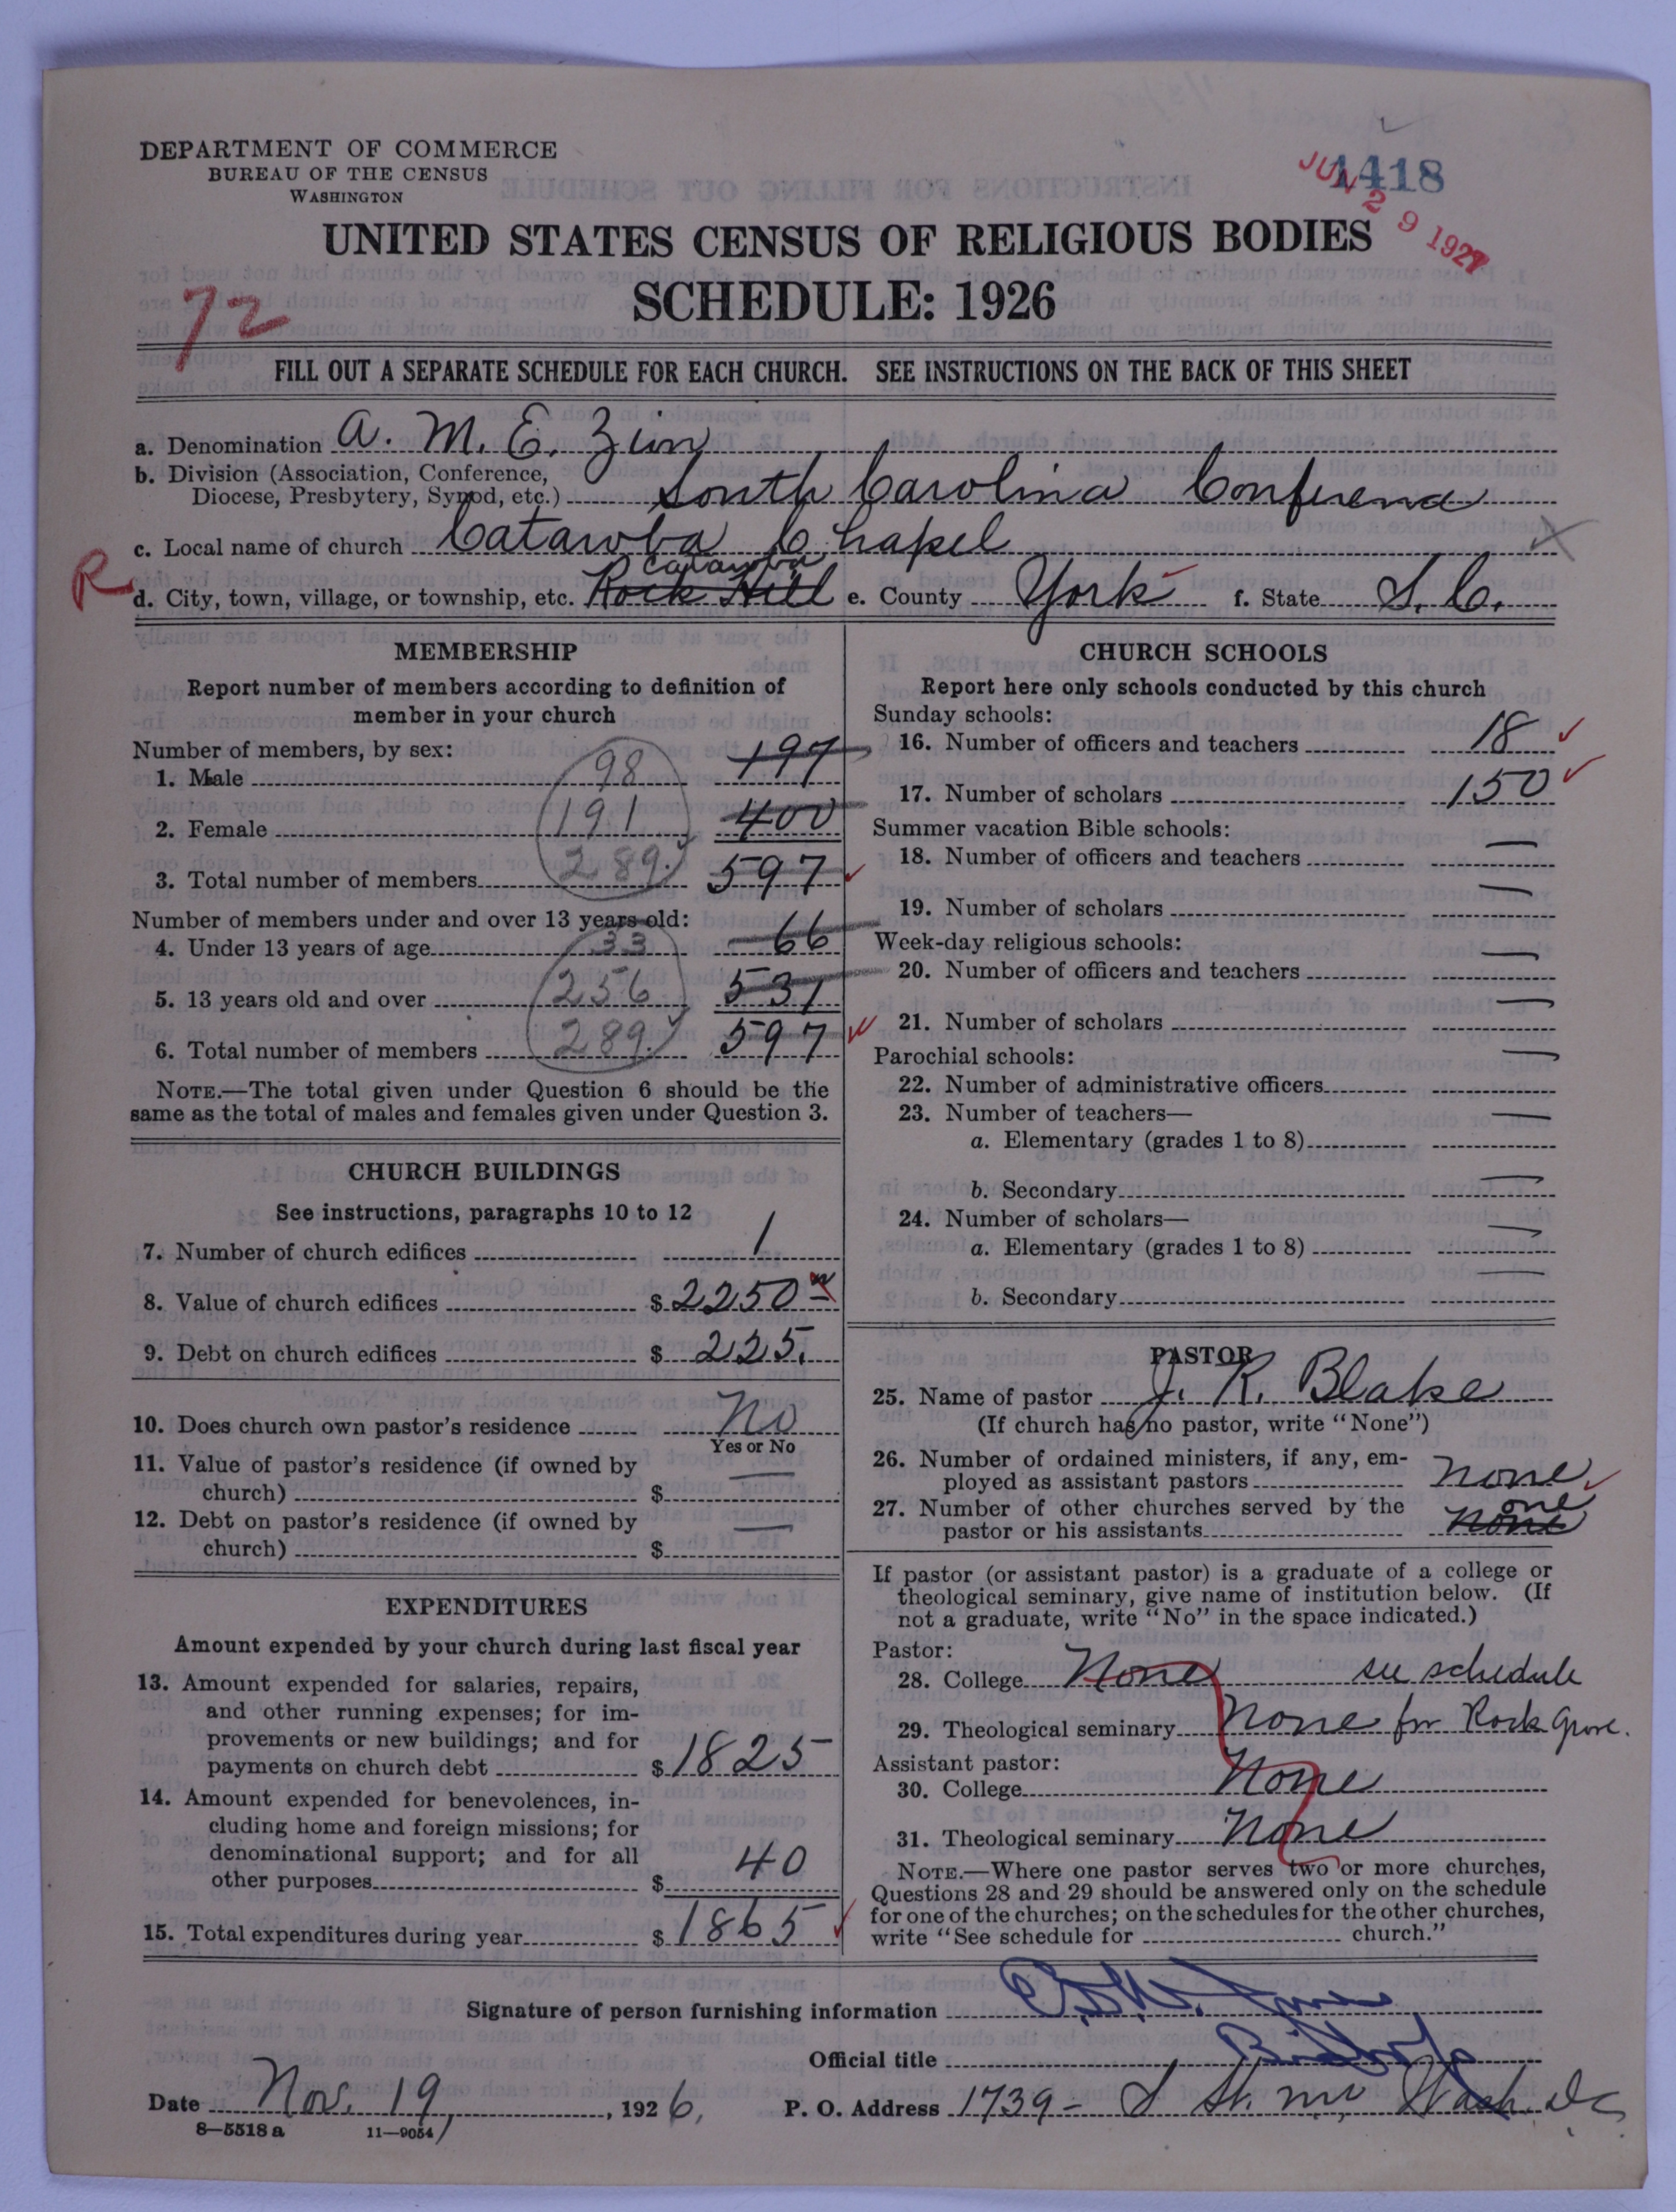 1418
JUN 29 1927
DEPARTMENT OF COMMERCE
BUREAU OF THE CENSUS
WASHINGTON
UNITED STATES CENSUS OF RELIGIOUS BODIES
SCHEDULE: 1926
72
FILL OUT A SEPARATE SCHEDULE FOR EACH CHURCH. SEE INSTRUCTIONS ON THE BACK OF THIS SHEET
a. Denomination A. M. E. Zion
b. Division (Association, Conference,
Diocese, Presbytery, Synod, etc.) South Carolina Conference
c. Local name of church Catawba Chapel
Catawba
R
d. City, town, village, or township, etc. Rock Hill e. County York f. State S. C.
MEMBERSHIP
Report number of members according to definition of
member in your church
Number of members, by sex:
1. Male 98 197
2. Female 191 400
3. Total number of members 289 597
Number of members under and over 13 years old:
4. Under 13 years of age 33 66
5. 13 years old and over 256 531
6. Total number of members 289 597
NOTE.—The total given under Question 6 should be the
same as the total of males and females given under Question 3.
CHURCH BUILDINGS
See instructions, paragraphs 10 to 12
7. Number of church edifices 1
8. Value of church edifices $ 2250
9. Debt on church edifices $ 225.
10. Does church own pastor's residence No
Yes or No
11. Value of pastor's residence (if owned by
church) $ —
12. Debt on pastor's residence (if owned by
church) $ —
EXPENDITURES
Amount expended by your church during last fiscal year
13. Amount expended for salaries, repairs,
and other running expenses; for im-
provements or new buildings; and for
payments on church debt $ 1825
14. Amount expended for benevolences, in-
cluding home and foreign missions; for
denominational support; and for all
other purposes $ 40
15. Total expenditures during year $ 1865
CHURCH SCHOOLS
Report here only schools conducted by this church
Sunday schools:
16. Number of officers and teachers 18
17. Number of scholars 150
Summer vacation Bible schools:
18. Number of officers and teachers —
19. Number of scholars —
Week-day religious schools:
20. Number of officers and teachers —
21. Number of scholars —
Parochial schools:
22. Number of administrative officers —
23. Number of teachers—
a. Elementary (grades 1 to 8) —
b. Secondary —
24. Number of scholars—
a. Elementary (grades 1 to 8) —
b. Secondary —
PASTOR
25. Name of pastor J. R. Blake
(If church has no pastor, write "None")
26. Number of ordained ministers, if any, em-
ployed as assistant pastors none
27. Number of other churches served by the
one
pastor or his assistants none
If pastor (or assistant pastor) is a graduate of a college or
theological seminary, give name of institution below. (If
not a graduate, write "No" in the space indicated.)
Pastor:
28. College None see schedule
29. Theological seminary None for Rock Grove.
Assistant pastor:
30. College None
31. Theological seminary None
NOTE.—Where one pastor serves two or more churches,
Questions 28 and 29 should be answered only on the schedule
for one of the churches; on the schedules for the other churches,
write "See schedule for church."
Signature of person furnishing information
Official title Bishop
Date Nov. 19, 1926, P. O. Address 1739 - S St. nw Wash. D.C.
8—5518 a 11—9054